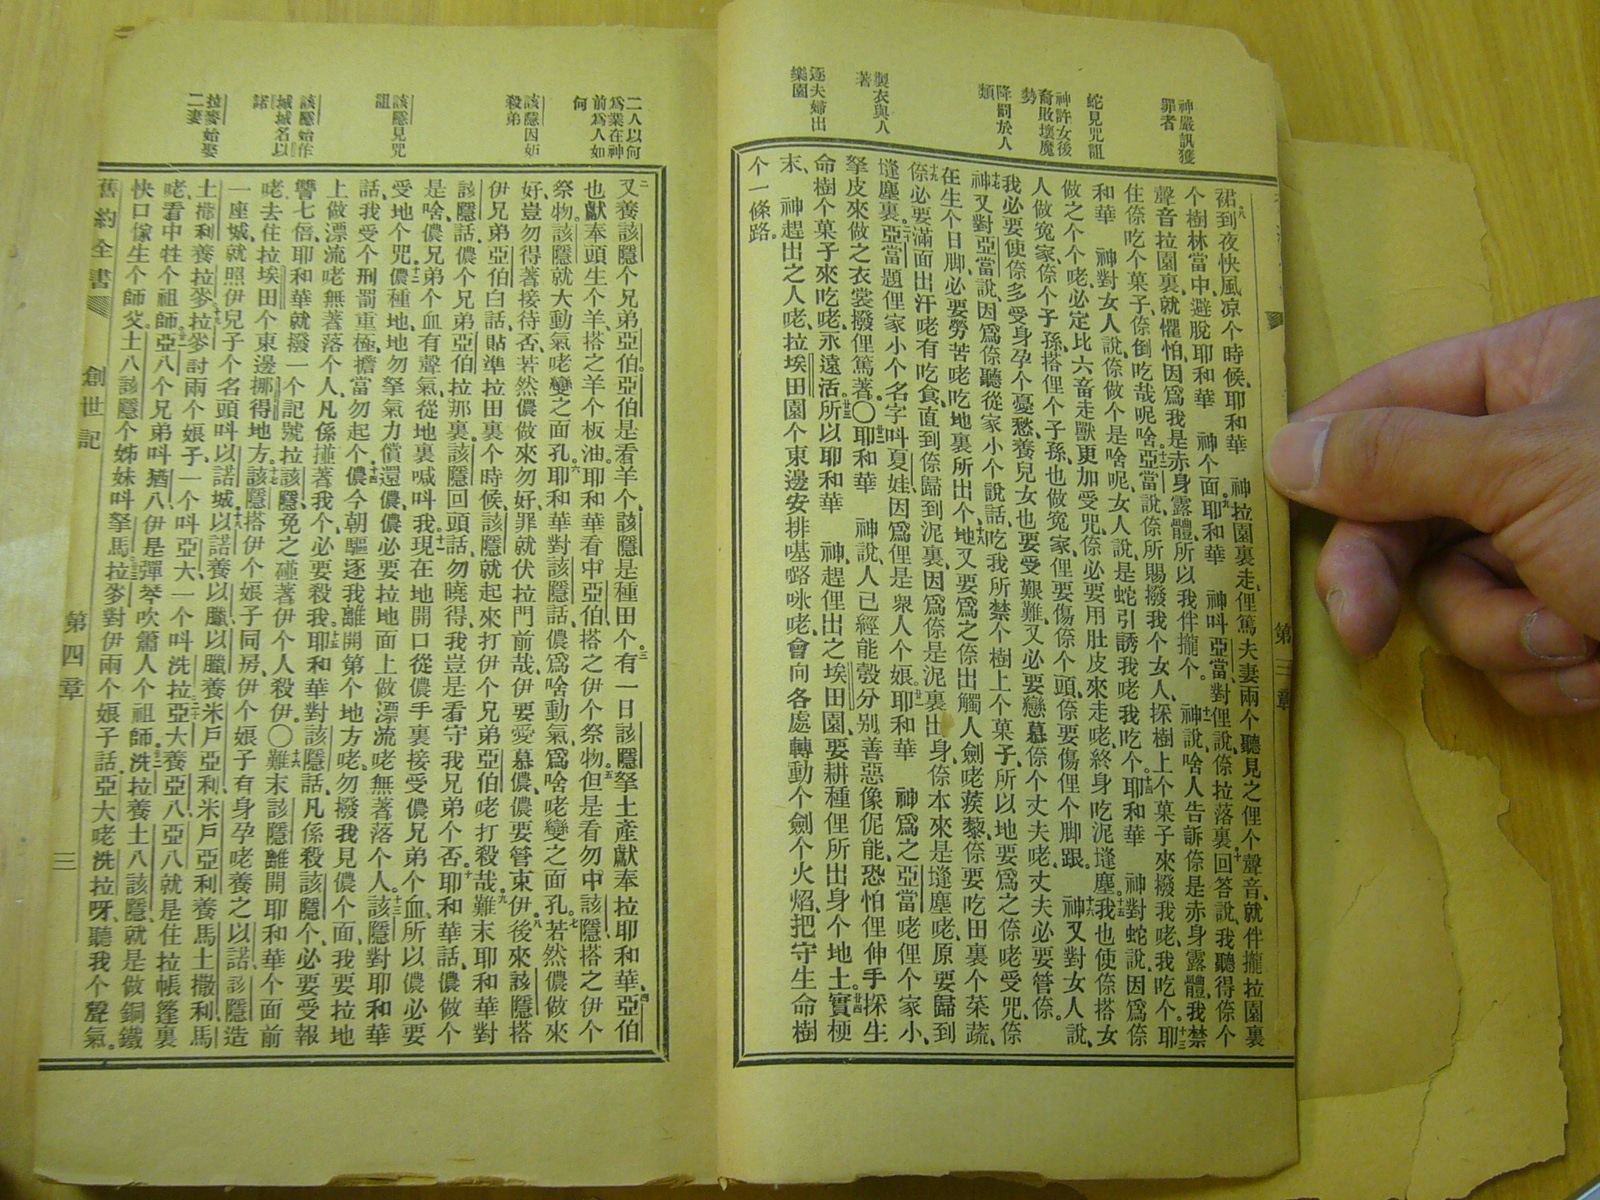 神嚴訊獲
罪者
蛇見咒詛
神許女後
裔敗壞魔
勢
降罰於人
類
製衣與人
著
逐夫婦出
樂園
第三章
裙八到夜快風凉个時候耶和華 神拉園裏走俚篤夫妻兩个聽見之俚个聲音就伴攏拉園裏
个樹林當中避脫耶和華 神个面九耶和華 神呌亞當對俚說倷拉落裏十回答說我聽得倷个
聲音拉園裏就懼怕因爲我是赤身露體所以我伴攏个十一神說啥人告訴倷是赤身露體我禁
住倷吃个菓子倷倒吃哉呢啥十二亞當說倷所賜撥我个女人採樹上个菓子來撥我咾我吃个十三耶
和華 神對女人說倷做个是啥呢女人說是蛇引誘我咾我吃个十四耶和華 神對蛇說因爲倷
做之个个咾必定比六畜走獸更加受咒倷必要用肚皮來走咾終身吃泥塳塵十五我也使倷搭女
人做寃家倷个子孫搭俚个子孫也做寃家俚要傷倷个頭倷要傷俚个脚跟十六神又對女人說
我必要使倷多受身孕个憂愁養兒女也要受艱難又必要戀慕倷个丈夫咾丈夫必要管倷
十七神又對亞當說因爲倷聽從家小个說話吃我所禁个樹上个菓子所以地要爲之倷咾受咒倷
在生个日脚必要勞苦咾吃地裏所出个十八地又要爲之倷出觸人劍咾蒺藜倷要吃田裏个菜蔬
十九倷必要滿面出汗咾有吃食直到倷歸到泥裏因爲倷是泥裏出身倷本來是塳塵咾原要歸到
塳塵裏二十亞當題俚家小个名字呌夏娃因爲俚是衆人个娘廿一耶和華 神爲之亞當咾俚个家小
拏皮來做之衣裳撥俚篤著〇廿二耶和華 神說人已經能彀分别善惡像伲能恐怕俚伸手採生
命樹个菓子來吃咾永遠活廿三所以耶和華 神趕俚出之埃田園要耕種俚所出身个地土廿四實梗
末 神趕出之人咾拉埃田園个東邊安排𠼻㗉咪咾會向各處轉動个劍个火焰把守生命樹
个一條路
二人以何
爲業在神
前爲人如
何
該隱因妬
殺弟
該隱見咒
詛
該隱始作
城城名以
諾
拉麥始娶
二妻
二又養該隱个兄弟亞伯亞伯是看羊个該隱是種田个三有一日該隱拏土產獻奉拉耶和華四亞伯
也獻奉頭生个羊搭之羊个板油耶和華看中亞伯搭之伊个祭物五但是看勿中該隱搭之伊个
祭物該隱就大動氣咾變之面孔六耶和華對該隱話儂爲啥動氣爲啥咾變之面孔七若然儂做來
好豈勿得著接待否若然儂做來勿好罪就伏拉門前哉伊要愛慕儂儂要管束伊八後來該隱搭
伊兄弟亞伯白話貼準拉田裏个時候該隱就起來打伊个兄弟亞伯咾打殺哉九難末耶和華對
該隱話儂个兄弟亞伯拉那裏該隱回頭話勿曉得我豈是看守我兄弟个否十耶和華話儂做个
是啥儂兄弟个血有聲氣從地裏喊呌我十一現在地開口從儂手裏接受儂兄弟个血所以儂必要
受地个咒十二儂種地地勿拏氣力償還儂儂必要拉地面上做漂流咾無著落个人十三該隱對耶和華
話我受个刑罰重極擔當勿起个十四儂今朝驅逐我離開第个地方咾勿撥我見儂个面我要拉地
上做漂流咾無著落个人凡係撞著我个必要殺我十五耶和華對該隱話凡係殺該隱个必要受報
讐七倍耶和華就撥一个記號拉該隱免之碰著伊个人殺伊〇十六難末該隱離開耶和華个面前
咾去住拉埃田个東邊挪得地方十七該隱搭伊个娘子同房伊个娘子有身孕咾養之以諾該隱造
一座城就照伊兒子个名頭呌以諾城十八以諾養以臘以臘養米戶亞利米戶亞利養馬土撒利馬
土撒利養拉麥十九拉麥討兩个娘子一个呌亞大一个呌洗拉二十亞大養亞八亞八就是住拉帳篷裏
咾看中牲个祖師廿一亞八个兄弟呌猶八伊是彈琴吹簫人个祖師廿二洗拉養土八該隱就是做銅鐵
快口傢生个師父土八該隱个姊妹呌拏馬廿三拉麥對伊兩个娘子話亞大咾洗拉呀聽我个聲氣
舊約全書
創世記
第四章
三